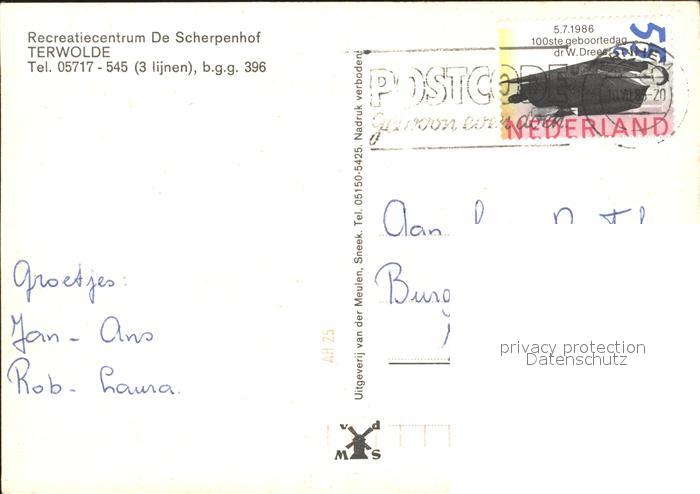 Recreatiecentrum De Scherpenhof
TERWOLDE
Tel. 05717 - 545 (3 lijnen), b.g.g. 396
Groetjes:
Jan - Ans
Rob - Laura.
Uitgeverij van der Meulen, Sneek. Tel. 05150-5425. Nadruk verboden.
AH 25
5.7.1986
100ste geboortedag
dr W. Drees
55
NEDERLAND
POSTCODE
gewoon even doen
Aan
Burg
privacy protection
Datenschutz
v d
W S